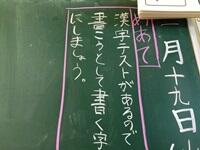 月十九日
めあて
漢字テストがあるので
書こうとして書く字
にしましょう。